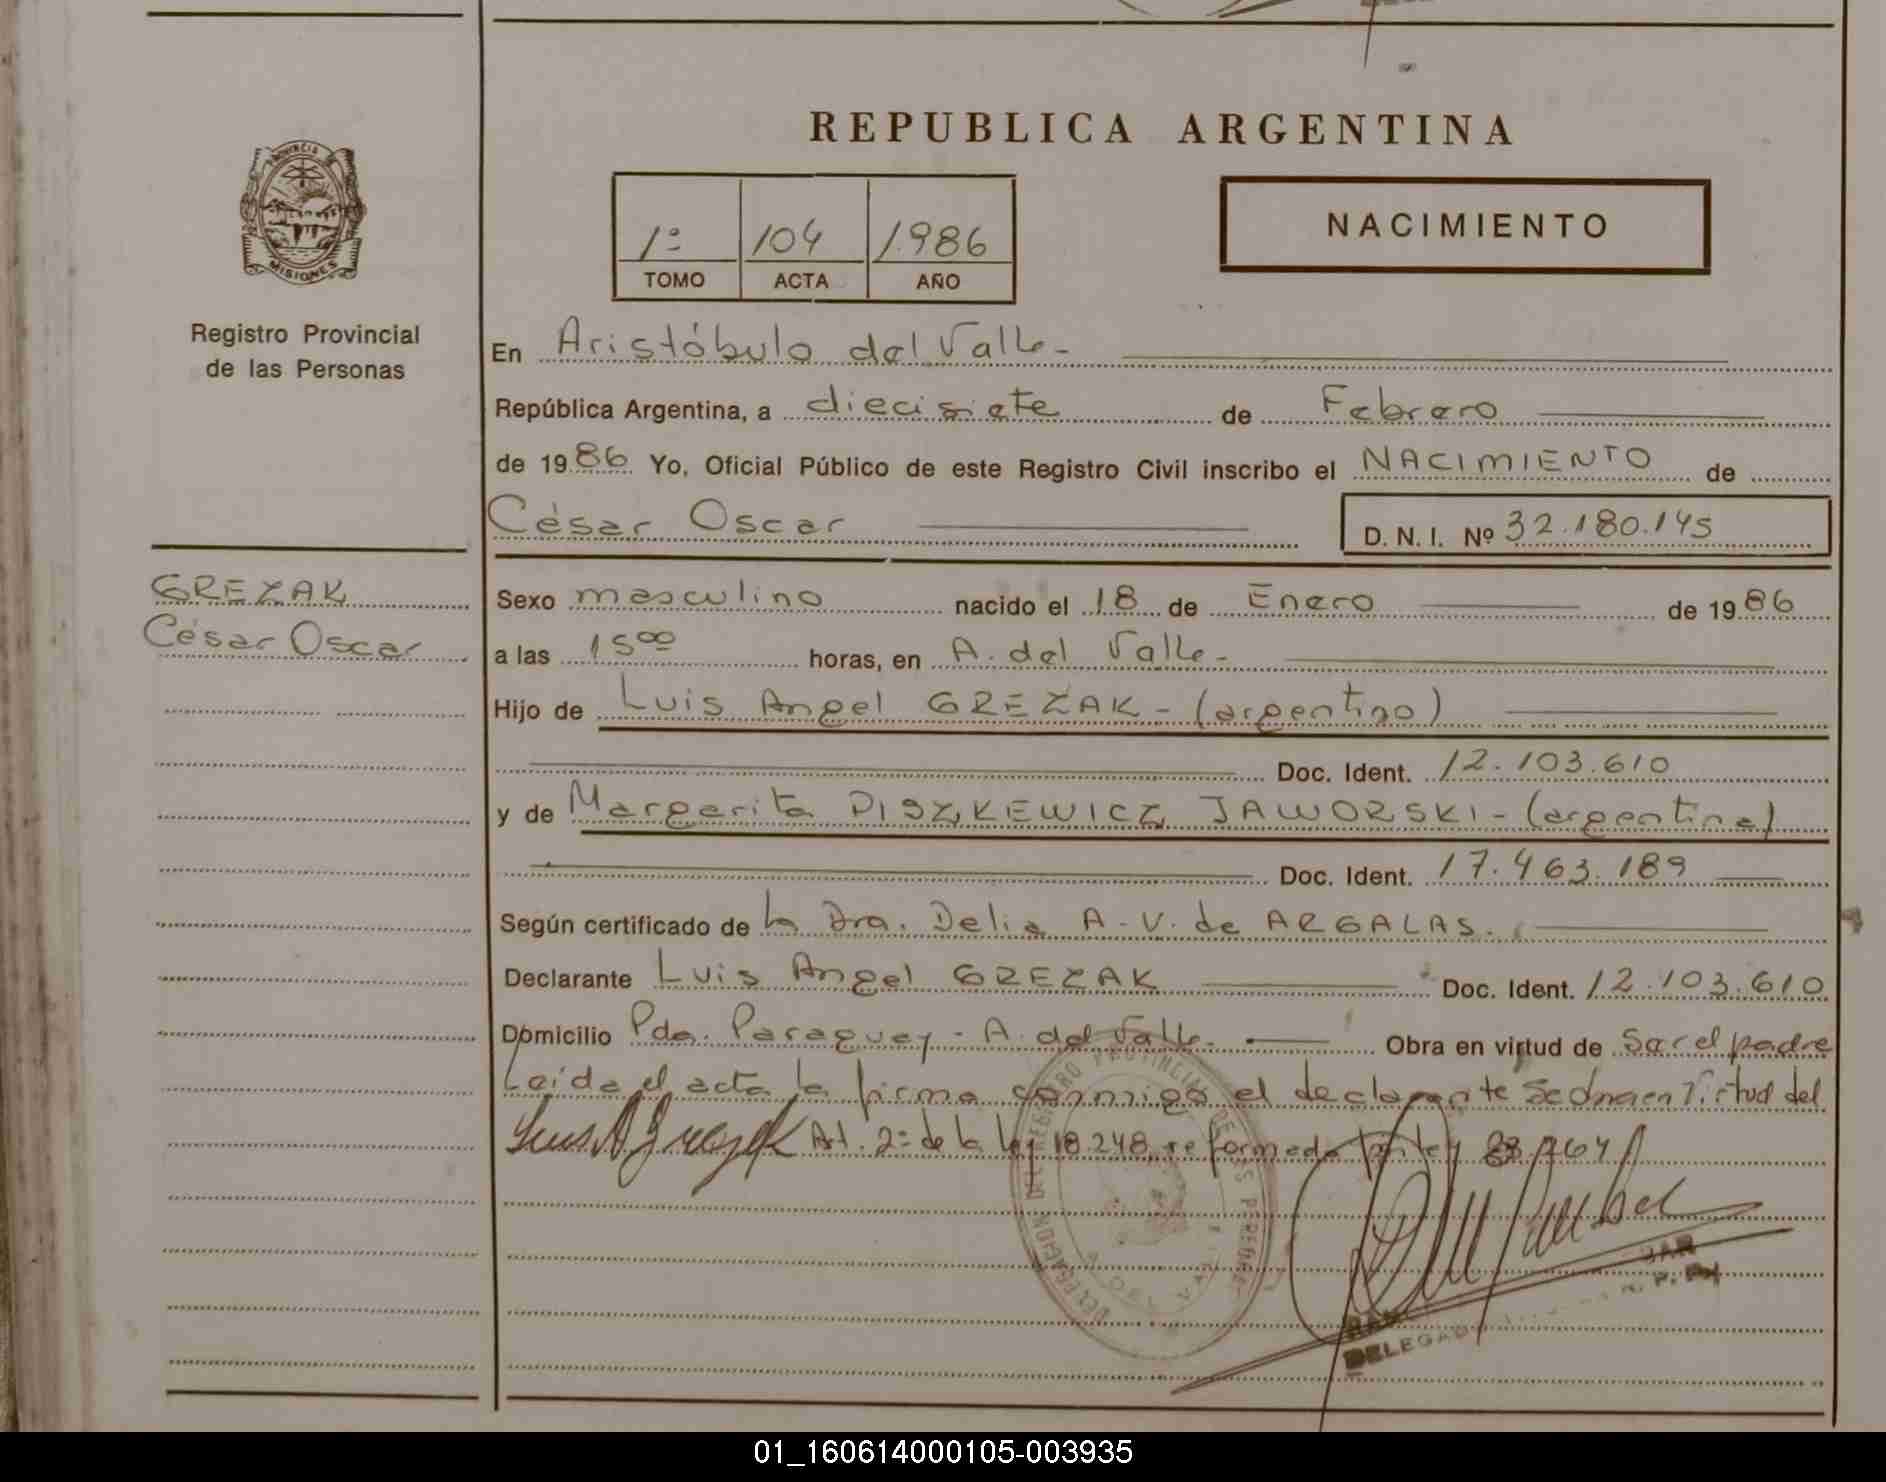 REPUBLICA ARGENTINA
PROVINCIA DE
MISIONES
Registro Provincial
de las Personas
1º 104 1.986
TOMO ACTA AÑO
NACIMIENTO
En Aristóbulo del Valle-
República Argentina, a diecisiete de Febrero
de 1986 Yo, Oficial Público de este Registro Civil inscribo el NACIMIENTO de
César Oscar D. N. I. Nº 32.180.145
GREZAK
César Oscar
Sexo masculino nacido el 18 de Enero de 1986
a las 15ºº horas, en A. del Valle-
Hijo de Luis Angel GREZAK - (argentino)
Doc. Ident. 12.103.610
y de Margarita PISZKEWICZ JAWORSKI - (argentina)
Doc. Ident. 17.463.189
Según certificado de la Dra. Delia A. V. de ARGALAS.
Declarante Luis Angel GREZAK Doc. Ident. 12.103.610
Domicilio Pdo. Paraguay - A. del Valle. Obra en virtud de Ser el padre
Leída el acta la firma conmigo el declarante Se dna en Virtud del
Art. 2º de la ley 18.248 reformada por ley 23.264
DELEGACION DEL REGISTRO PROVINCIAL DE LAS PERSONAS
DELEGAD
01_160614000105-003935